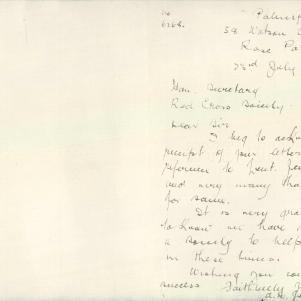 "Palmy
58 Watson
Rose Pa
23rd July
Hon. Secretary
Red Cross Society
Dear Sir
I beg to ackn
receipt of your letter
reference to Lieut.
and very many tha
for same.
It is very gra
to know we have
a society to help
in these times.
Wishing you con
success Faithfully